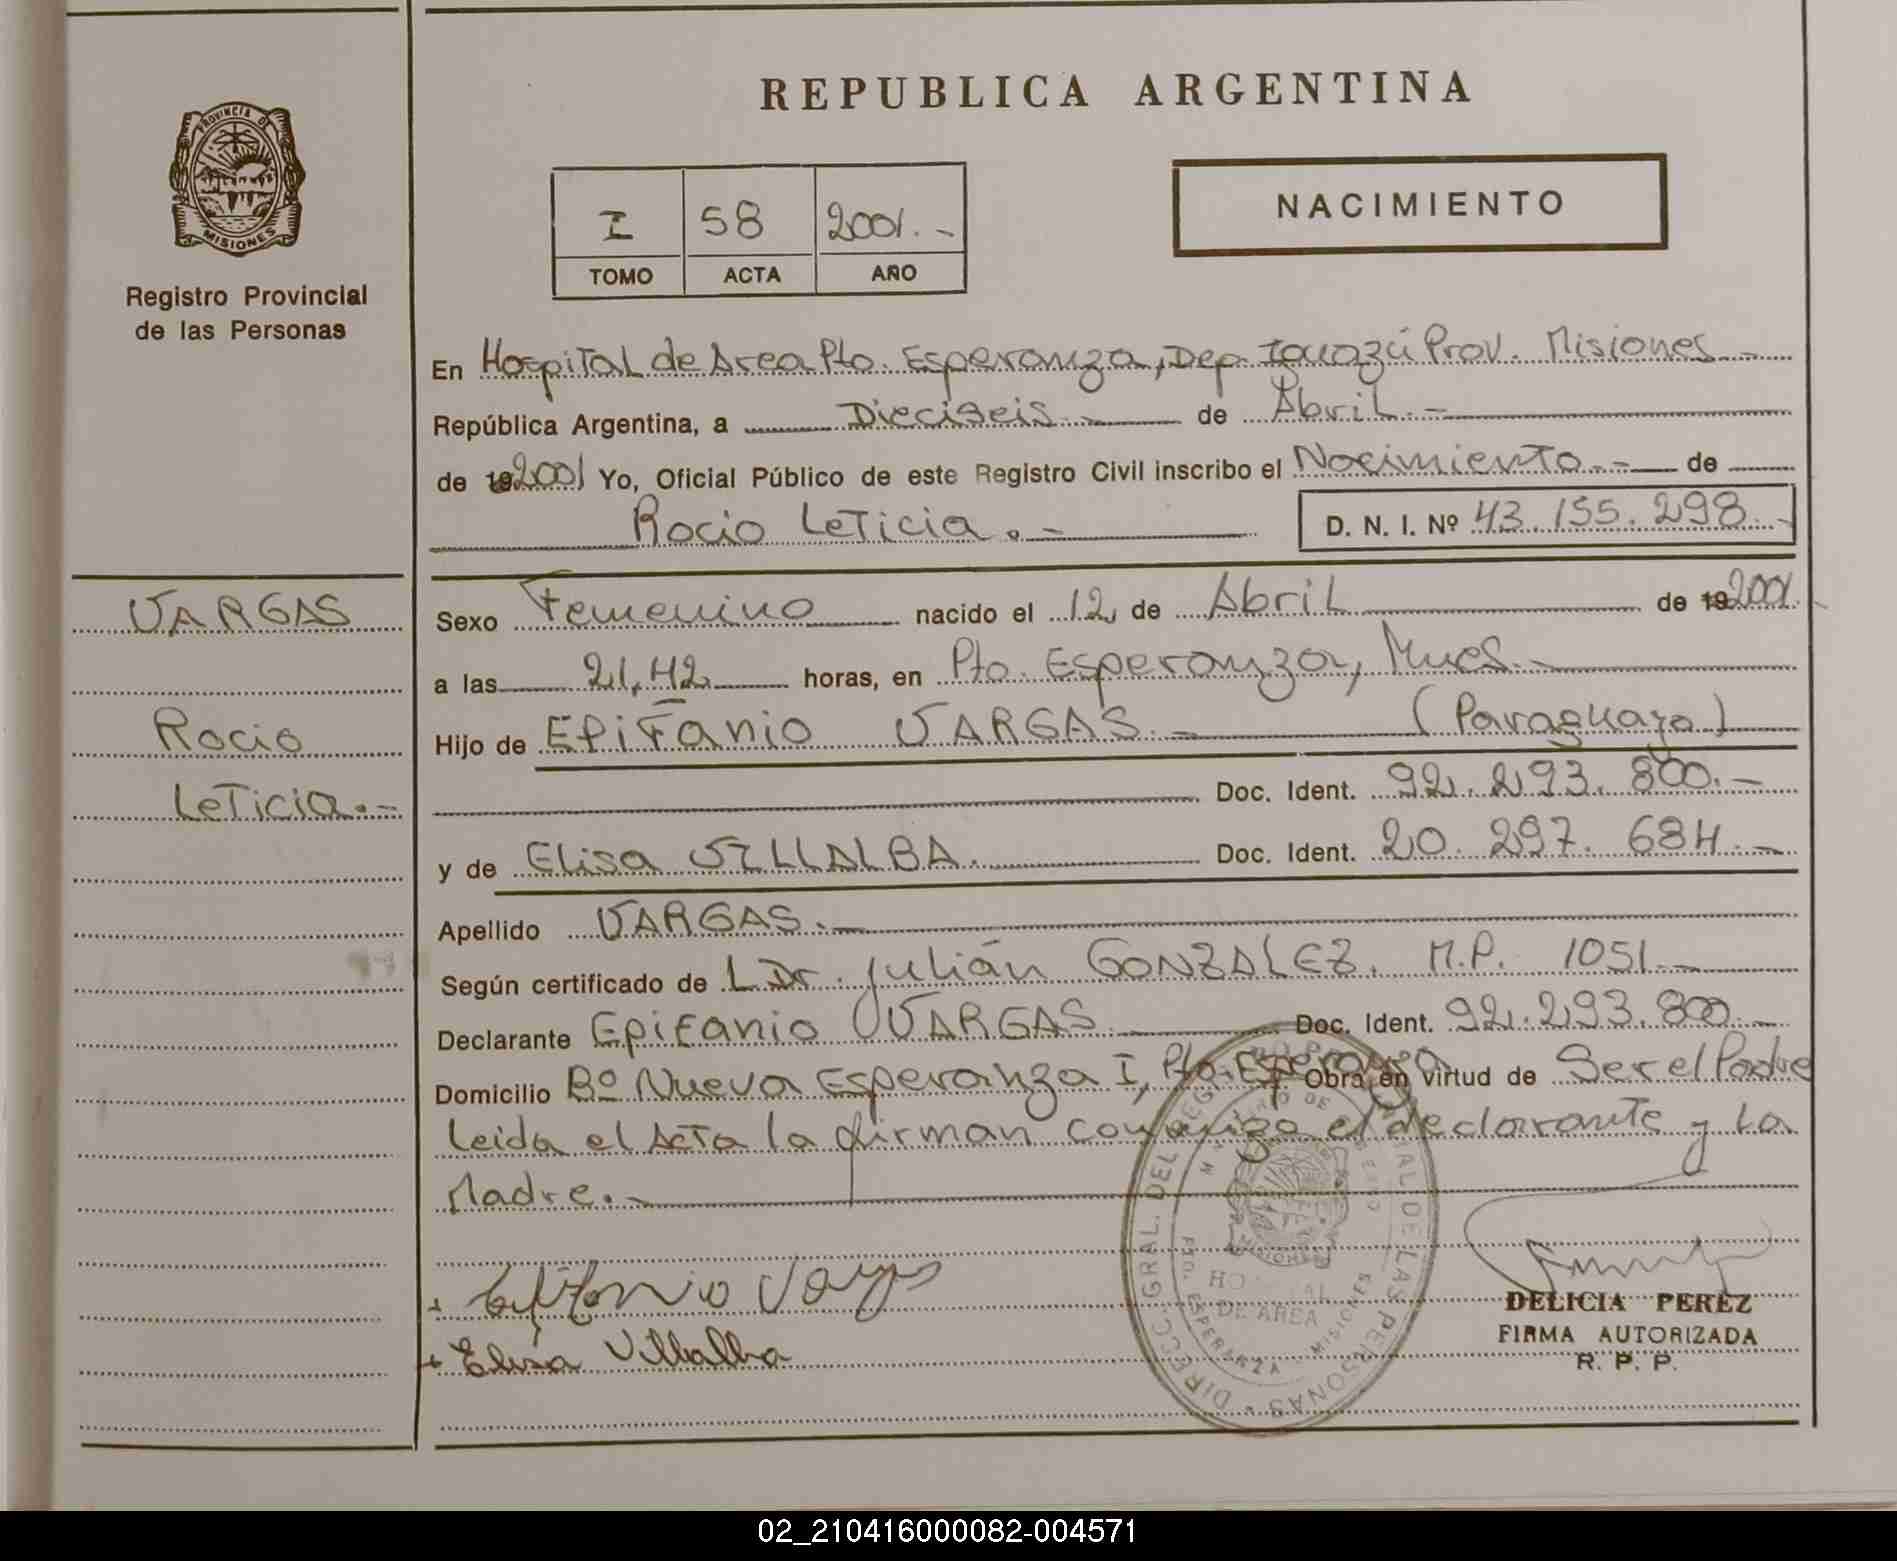 REPUBLICA ARGENTINA
PROVINCIA DE
MISIONES
Registro Provincial
de las Personas
I 58 2001.-
TOMO ACTA AÑO
NACIMIENTO
En Hospital de Area Pto. Esperanza, Dep. Iguazú Prov. Misiones.-
República Argentina, a Dieciseis.- de Abril.-
de 192001 Yo, Oficial Público de este Registro Civil inscribo el Nacimiento.- de
Rocio Leticia.- D. N. I. Nº 43.155.298.-
VARGAS
Rocio
Leticia.-
Sexo Femenino nacido el 12, de Abril de 192001.
a las 21,42 horas, en Pto. Esperanza, Mnes.-
Hijo de Epifanio VARGAS.- (Paraguayo)
Doc. Ident. 92.293.800.-
y de Elisa VILLALBA. Doc. Ident. 20.297.684.-
Apellido VARGAS.-
Según certificado de Dr. Julián GONZALEZ. M.P. 1051.-
Declarante Epifanio VARGAS Doc. Ident. 92.293.800.-
Domicilio Bº Nueva Esperanza I, Pto. Esperanza Obra en virtud de Ser el Padre
Leida el Acta la firman conmigo el declarante y la
Madre.-
Epifanio Vargas
Elisa Villalba
DIRECC. GRAL. DEL REG. PROVINCIAL DE LAS PERSONAS
MINISTERIO DE GOBIERNO
MISIONES
HOSPITAL
DE AREA
PTO. ESPERANZA - MISIONES
DELICIA PEREZ
FIRMA AUTORIZADA
R. P. P.
02_210416000082-004571